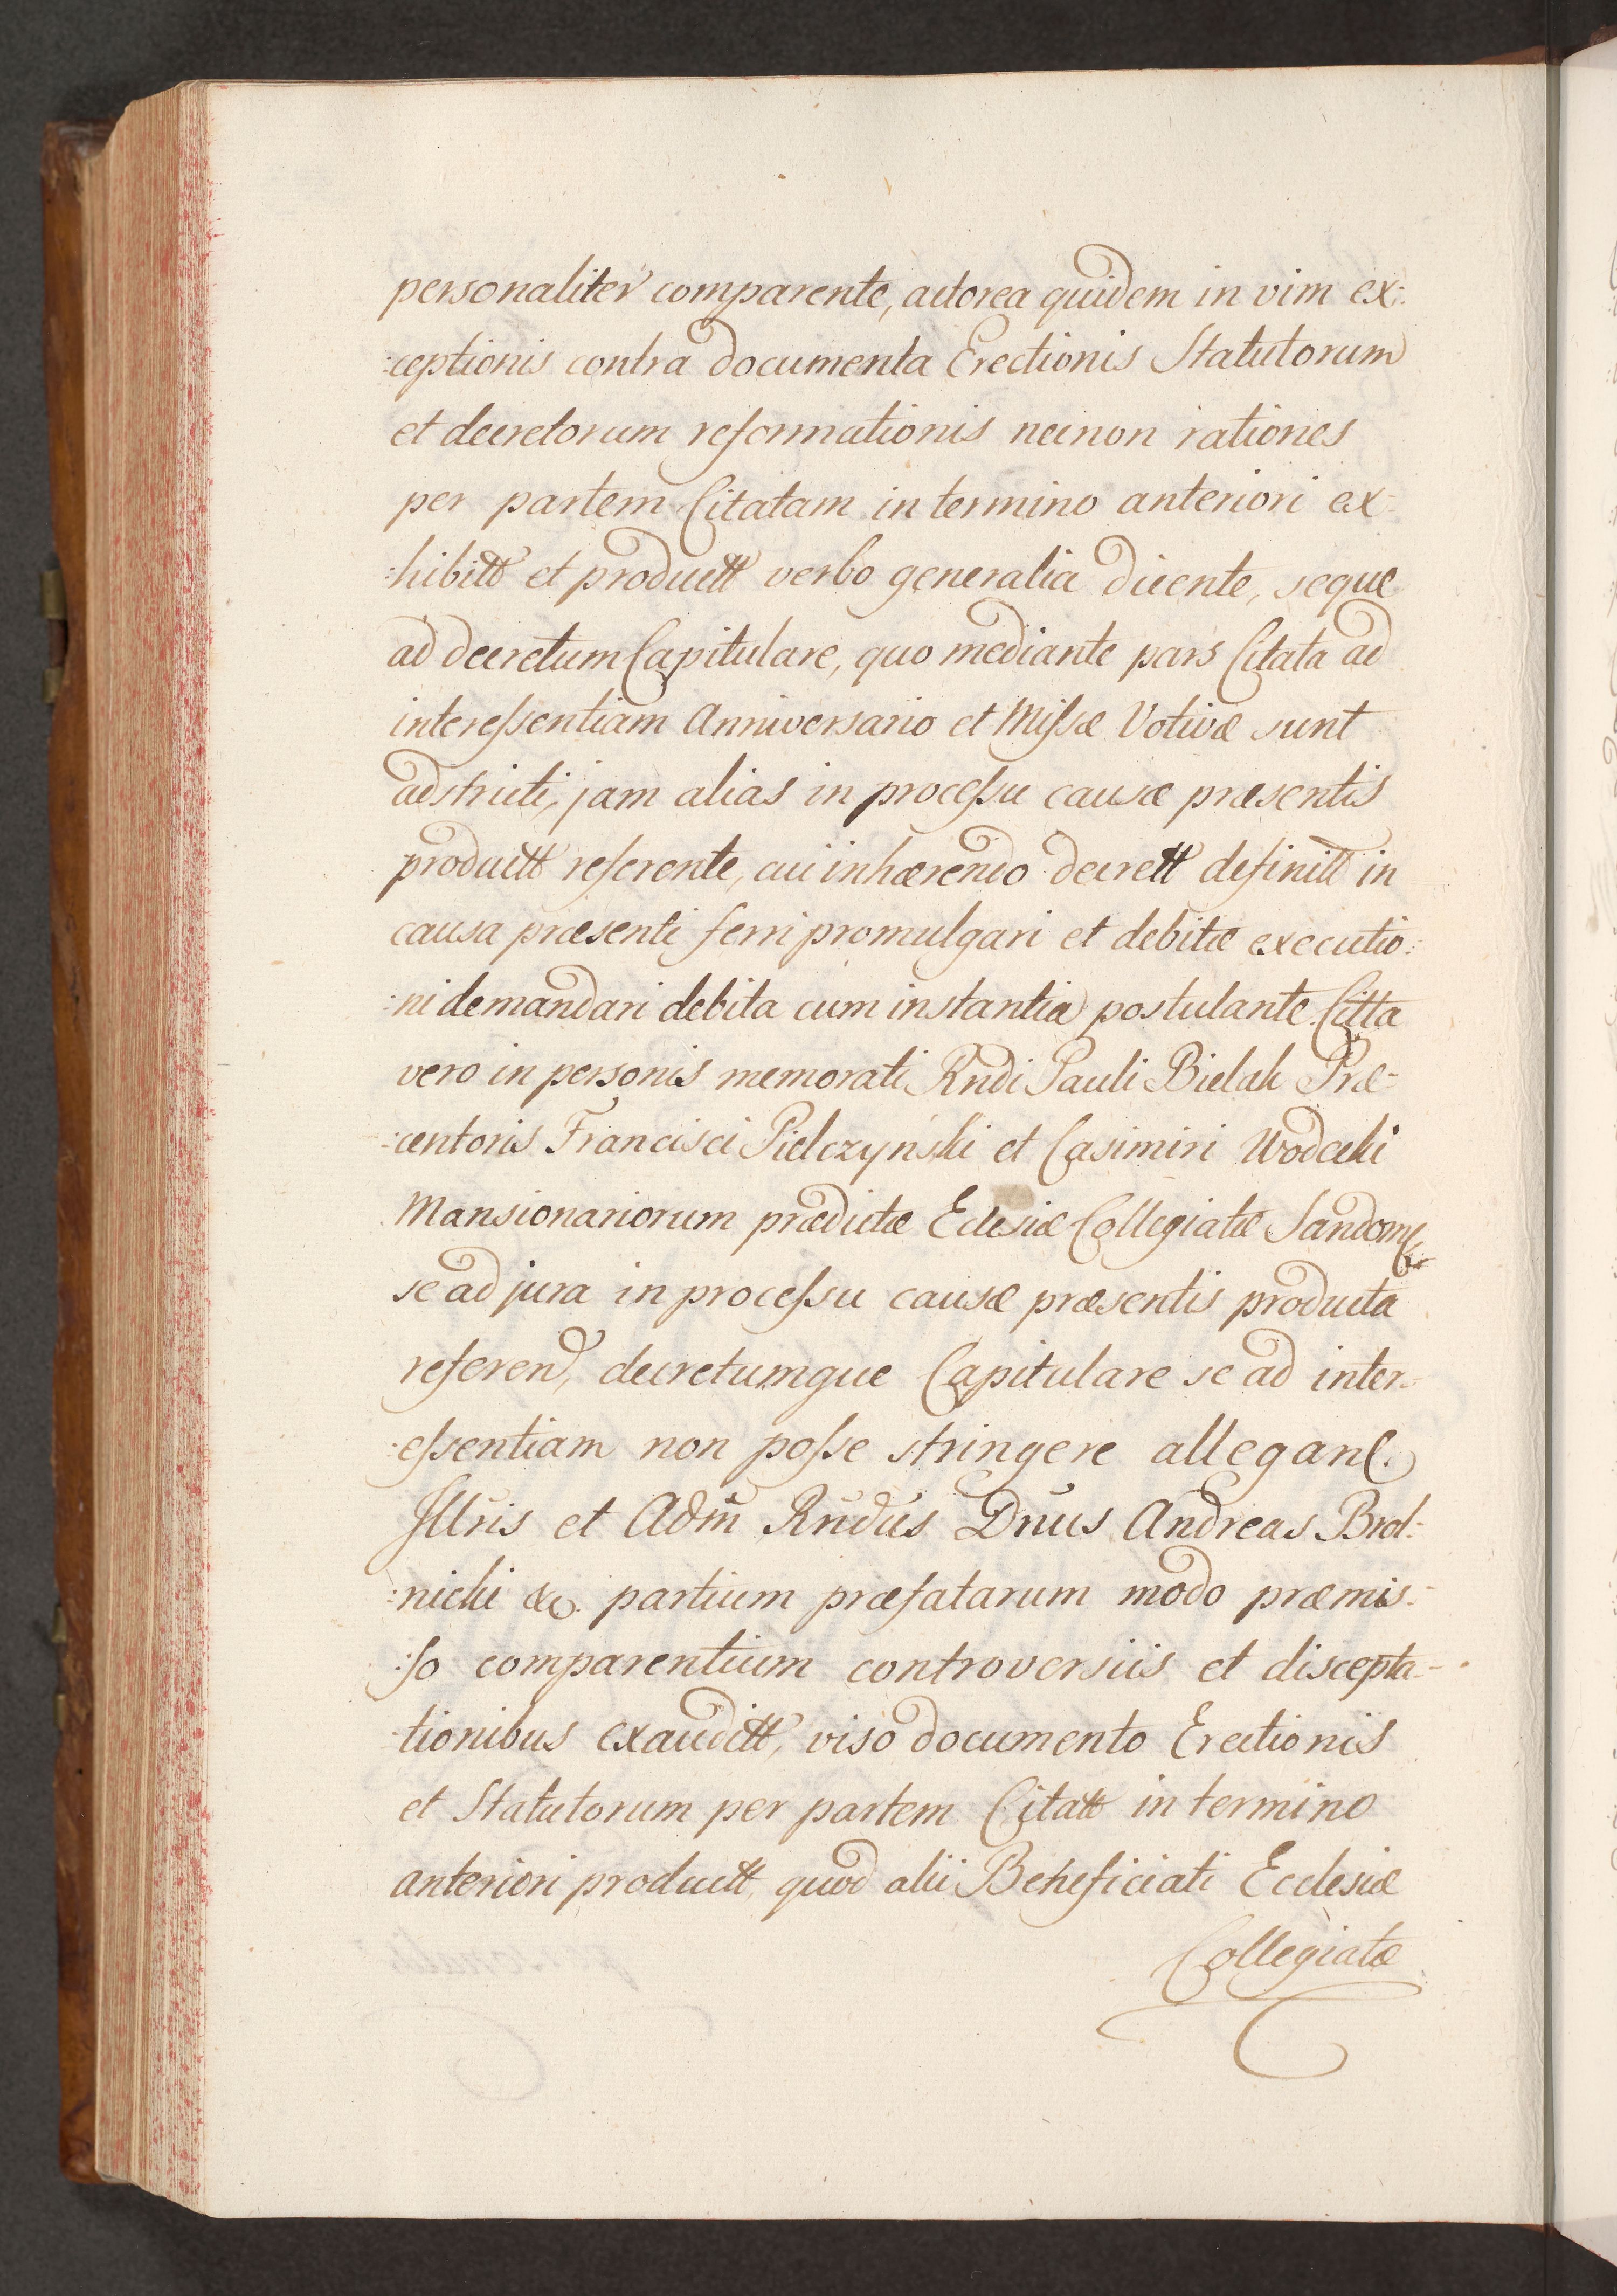 personaliter comparente, actorea quidem in vim ex:
:ceptionis contra documenta Erectionis Statutorum
et decretorum reformationis necnon rationes
per partem Citatam in termino anteriori ex:
:hibitt et productt verbo generalia dicente, seque
ad decretum Capitulare, quo mediante pars Citata ad
interessentiam Anniversario et Missæ Votivæ sunt
adstricti, jam alias in processu causæ præsentis
productt referente, cui inhærendo decrett definitt in
causa præsenti ferri promulgari et debitæ executio:
:ni demandari debita cum instantia postulante. Citta
vero in personis memorati Rndi Pauli Bielak Præ:
:centoris Francisci Pielczyński et Casimiri Wodecki
Mansionariorum prædictæ Eclesiæ Collegiatæ Sandom
se ad jura in processu causæ præsentis producta
referend, decretumque Capitulare se ad inter:
:essentiam non posse stringere allegan.
Illris et Adm Rndus Dnus Andreas Brol:
:nicki &c. partium præfatarum modo præmis:
:so comparentium controversiis et discepta:
:tionibus exauditt, viso documento Erectionis
et Statutorum per partem Citatt in termino
anteriori productt, quod alii Beneficiati Ecclesiæ
Collegiatæ